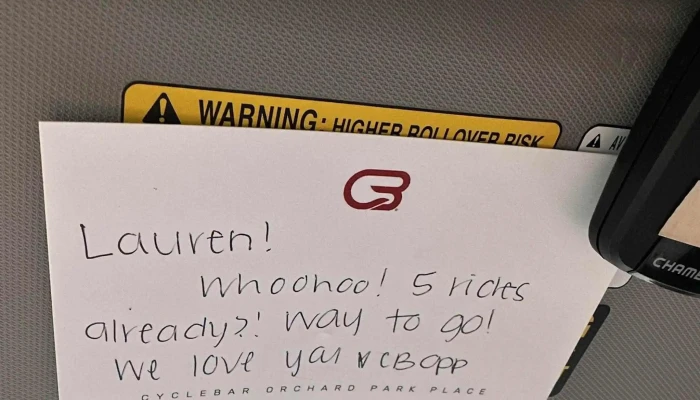 WARNING: HIGHER ROLLOVER RISK
AV
CB
CHAMB
Lauren!
Whoohoo! 5 rides
already?! Way to go!
We love ya! ♥ CBOPP
CYCLEBAR ORCHARD PARK PLACE